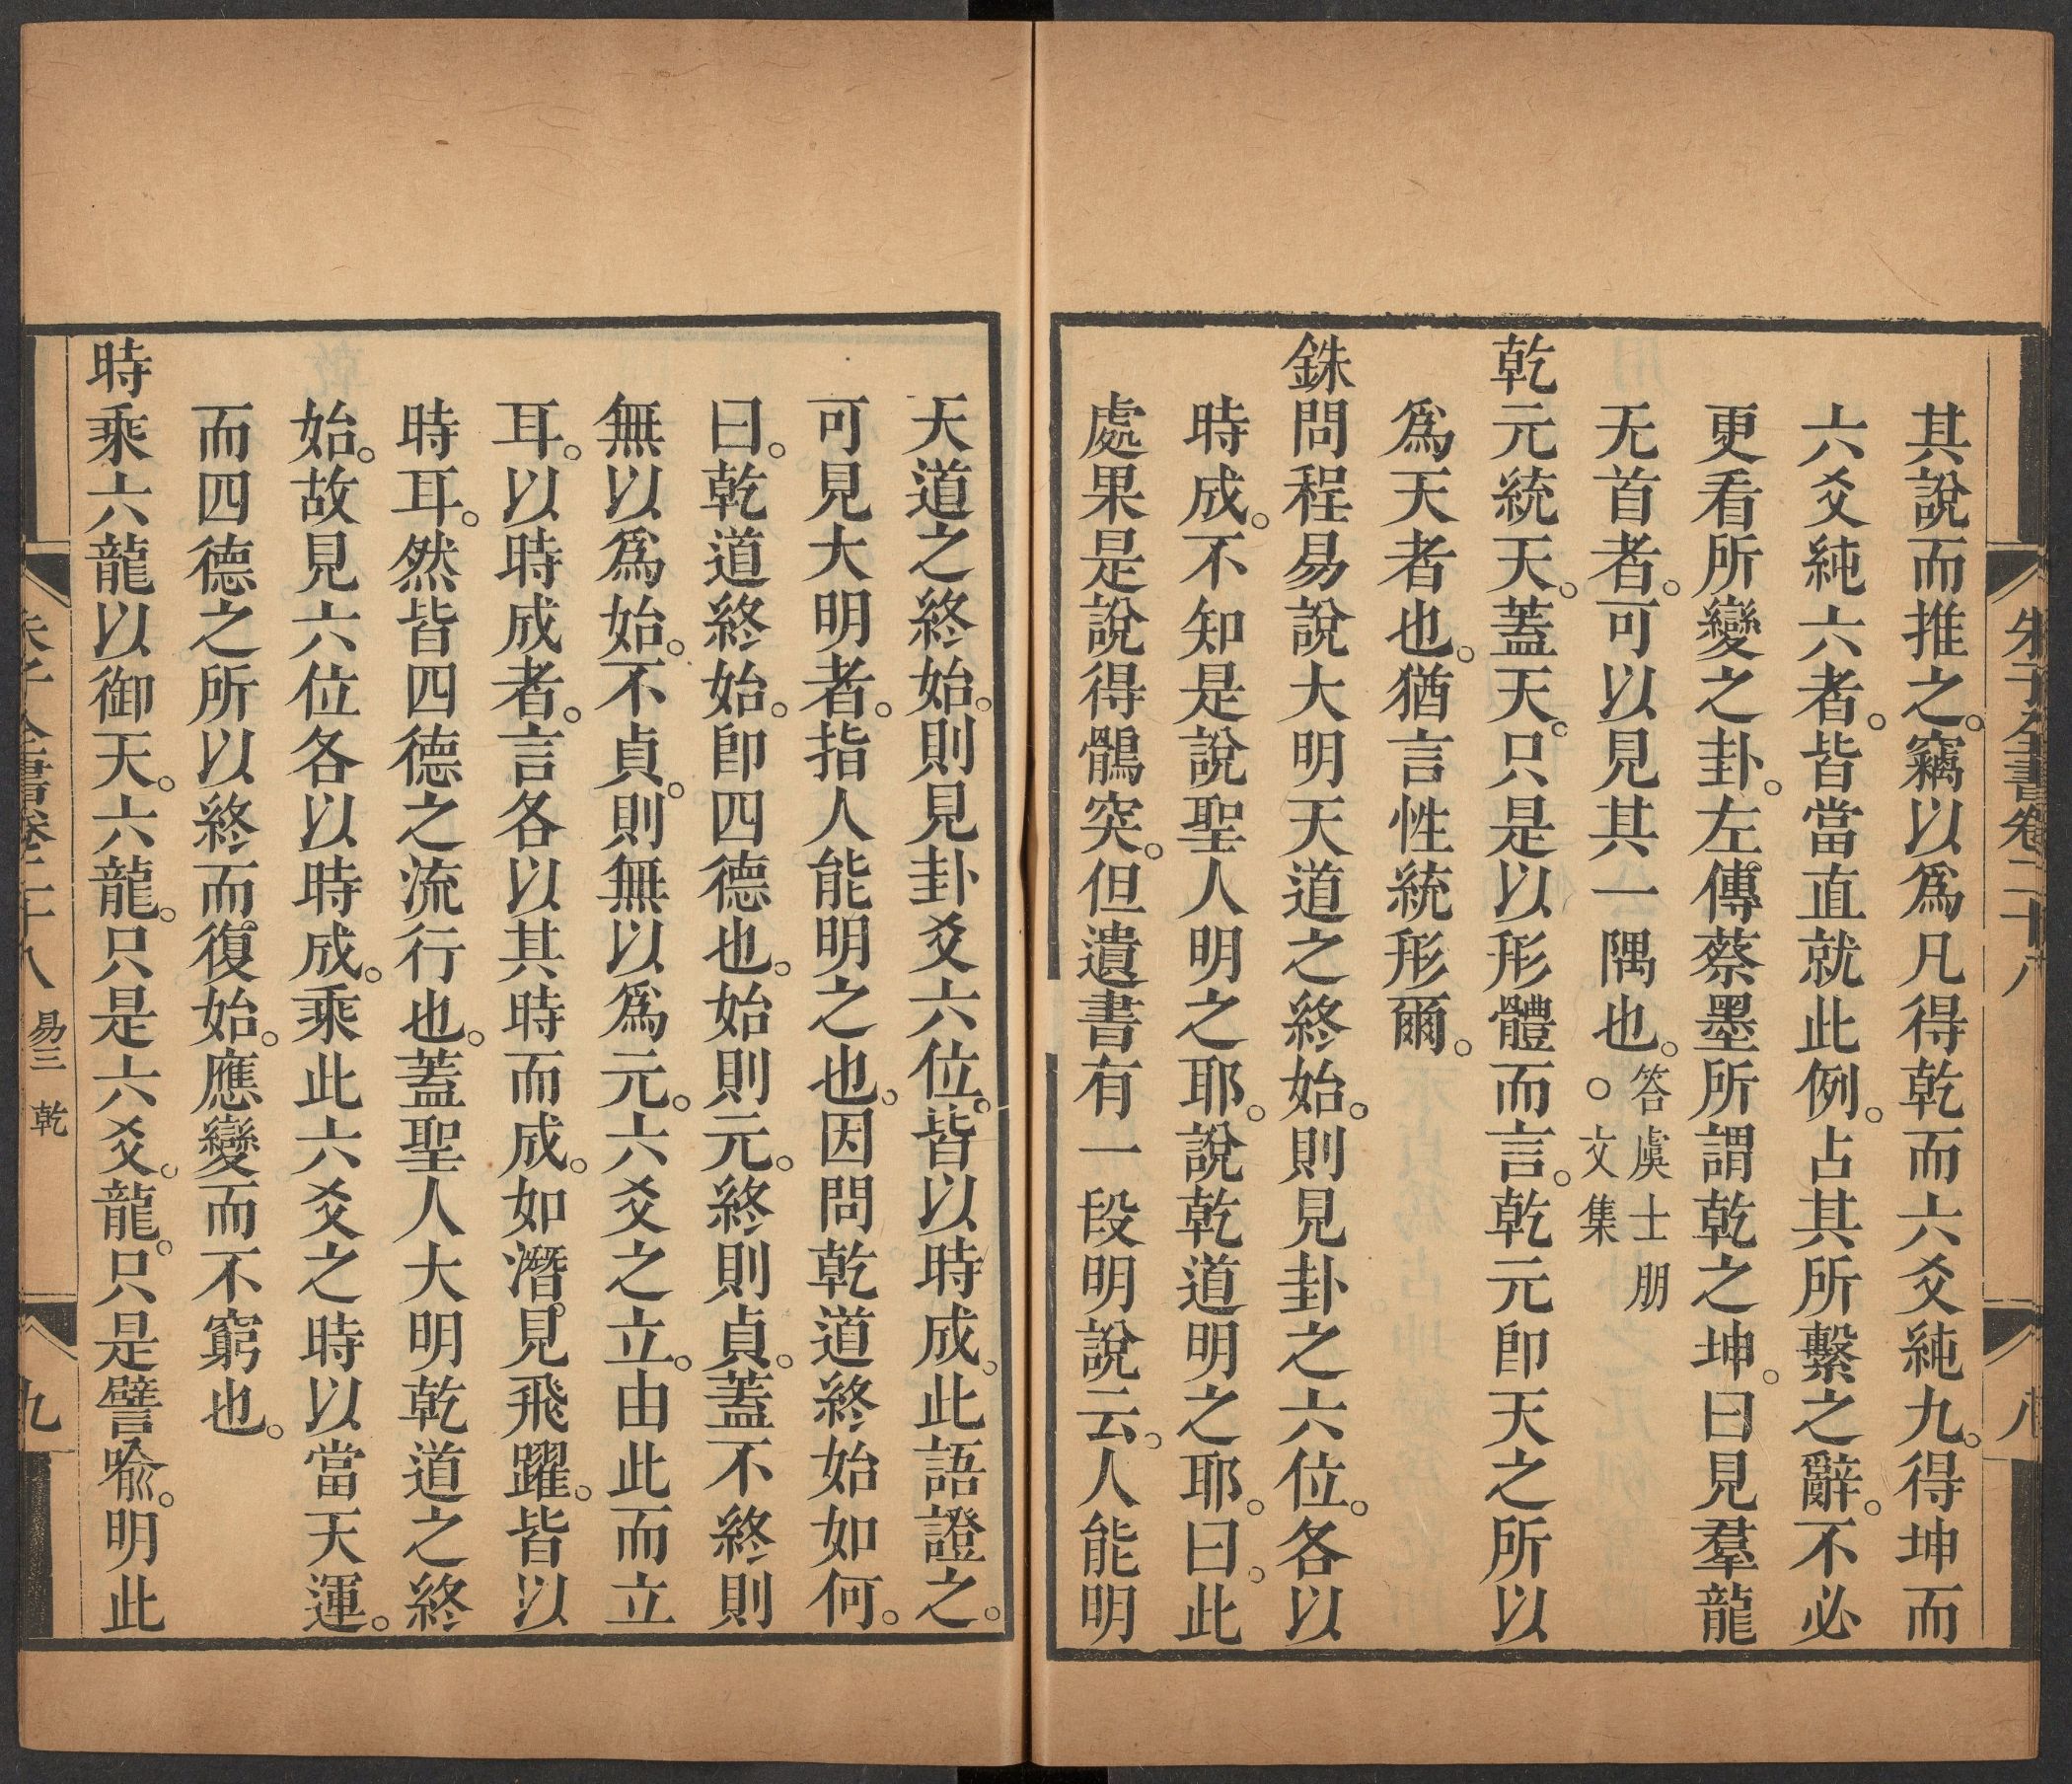 其說而推之。竊以爲凡得乾而六爻純九。得坤而
六爻純六者。皆當直就此例。占其所繫之辭。不必
更看所變之卦。左傳蔡墨所謂乾之坤。曰見羣龍
无首者。可以見其一隅也。○答虞士朋文集
乾元統天。蓋天。只是以形體而言。乾元卽天之所以
爲天者也。猶言性統形爾。
銖問程易說大明天道之終始。則見卦之六位。各以
時成。不知是說聖人明之耶。說乾道明之耶。曰。此
處果是說得鶻突。但遺書有一段明說云。人能明
朱子全書卷二十八
八
天道之終始。則見卦爻六位。皆以時成。此語證之。
可見大明者。指人能明之也。因問乾道終始如何。
曰。乾道終始。卽四德也。始則元。終則貞。蓋不終則
無以爲始。不貞。則無以爲元。六爻之立。由此而立
耳。以時成者。言各以其時而成。如潛。見飛躍。皆以
時耳。然皆四德之流行也。蓋聖人大明乾道之終
始。故見六位各以時成。乘此六爻之時以當天運。
而四德之所以終而復始。應變而不窮也。
時乘六龍以御天。六龍。只是六爻。龍。只是譬喩。明此
朱子全書卷二十八 易三 乾
九